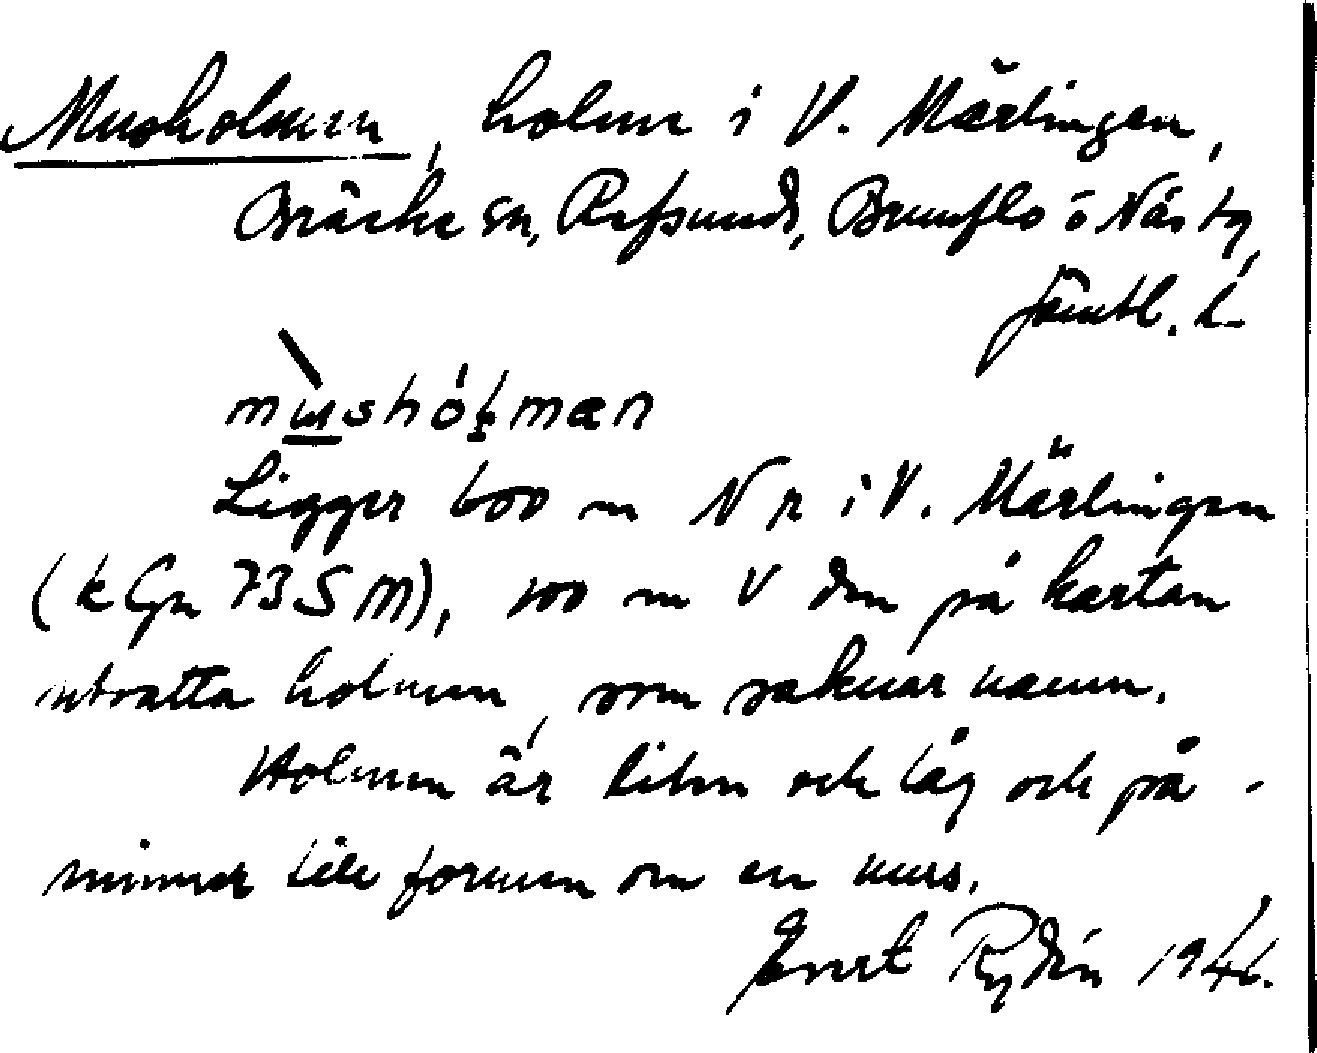 Musholmen, holme i V. Märlingen,
Bräcke sn, Refsunds, Brunflo o Näs tg,
Jämtl. l.
mùshóɫmæn
Ligger 600 m N r i V. Märlingen
(k Gn 73 S M), 100 m V den på kartan
utsatta holmen, som saknar namn.
Holmen är liten och låg och på-
minner till formen om en mus.
Ernst Rydén 1946.